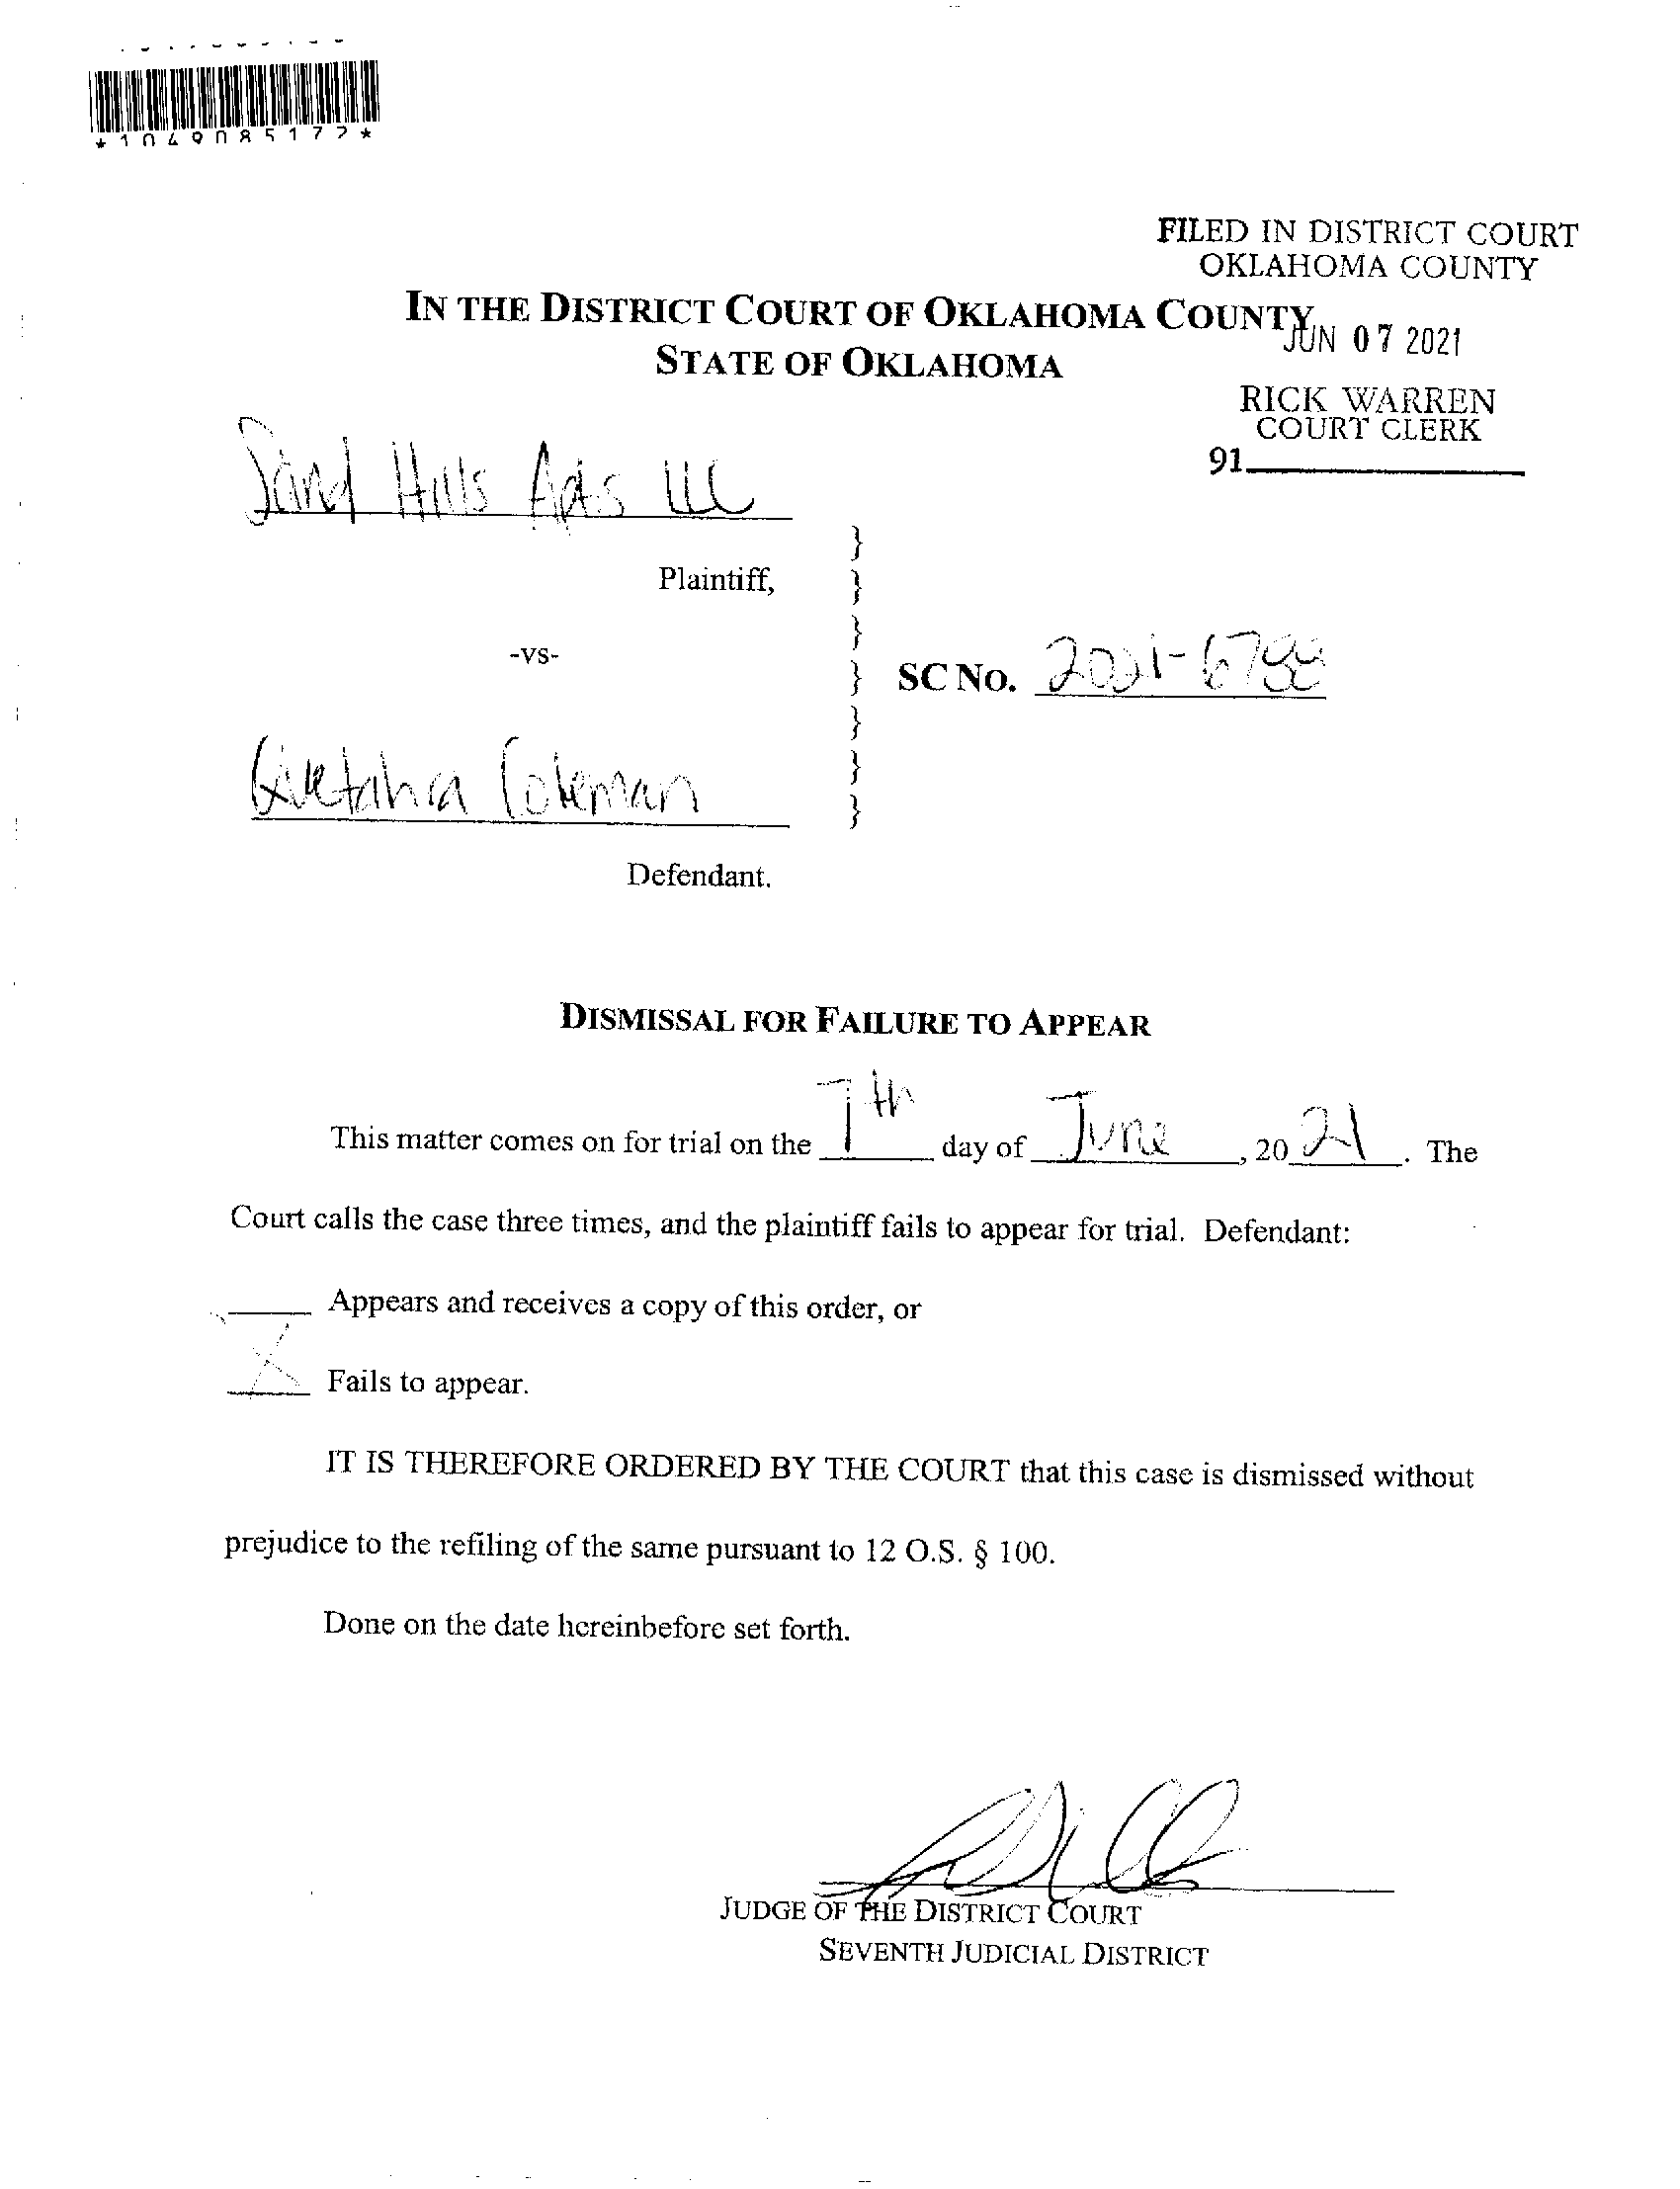 *1049085172*
FILED IN DISTRICT COURT
OKLAHOMA COUNTY
IN THE DISTRICT COURT OF OKLAHOMA COUNTY
JUN 07 2021
STATE OF OKLAHOMA
RICK WARREN
COURT CLERK
91
Sand Hills Apts LLC
}
Plaintiff, }
}
-vs-
} SC No. 2021-6788
}
}
Coleman }
Defendant.
DISMISSAL FOR FAILURE TO APPEAR
This matter comes on for trial on the 7th day of June, 2021. The
Court calls the case three times, and the plaintiff fails to appear for trial. Defendant:
Appears and receives a copy of this order, or
X Fails to appear.
IT IS THEREFORE ORDERED BY THE COURT that this case is dismissed without
prejudice to the refiling of the same pursuant to 12 O.S. § 100.
Done on the date hereinbefore set forth.
JUDGE OF THE DISTRICT COURT
SEVENTH JUDICIAL DISTRICT